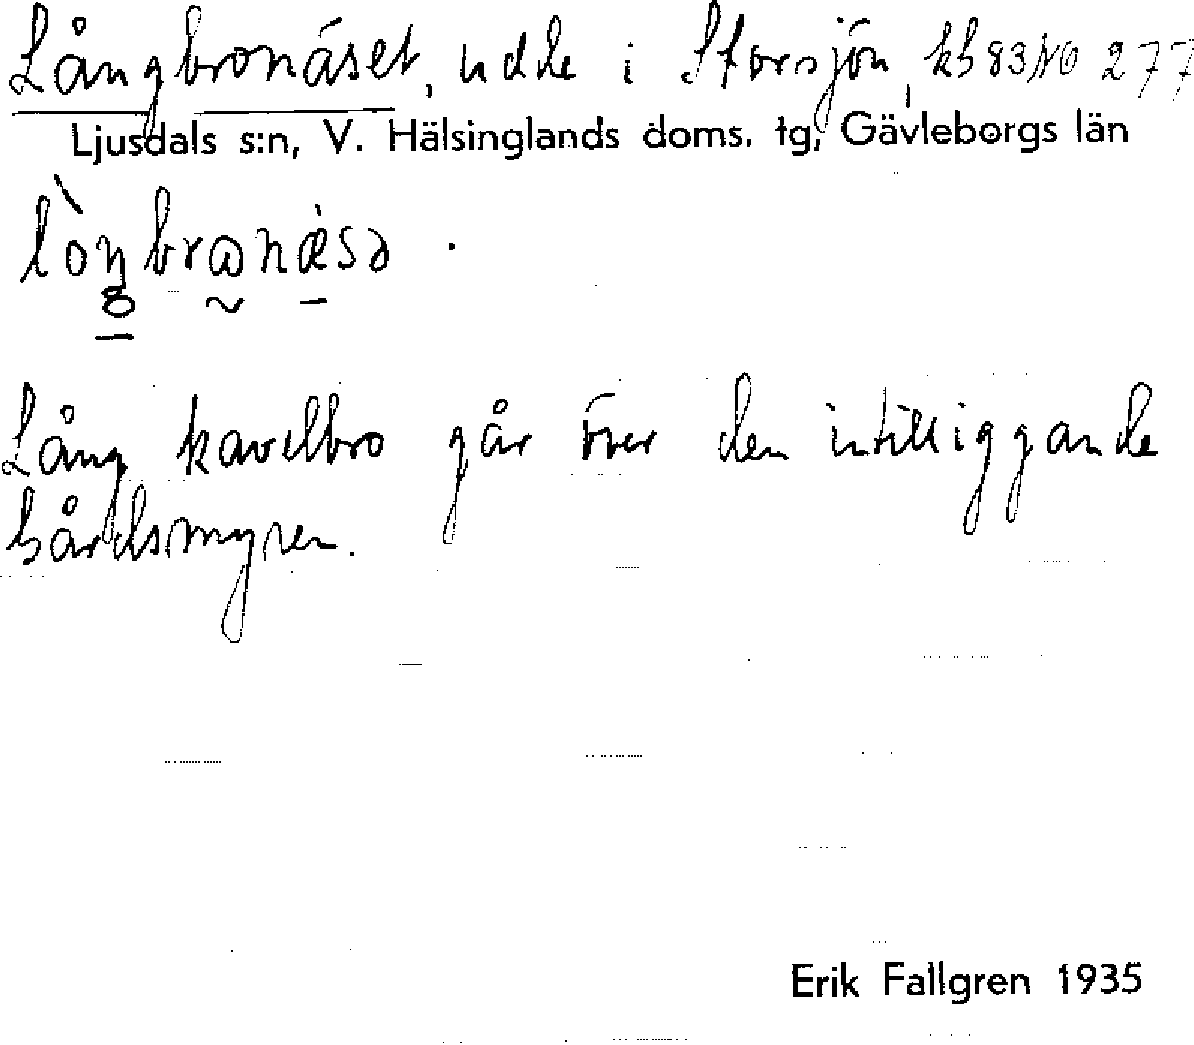 Långbronäset, udde i Storsjön, kb 83 NO 277
Ljusdals s:n, V. Hälsinglands doms. tg, Gävleborgs län
Lång kavelbro går över den intilliggande
Bårdsmyren.
Erik Fallgren 1935